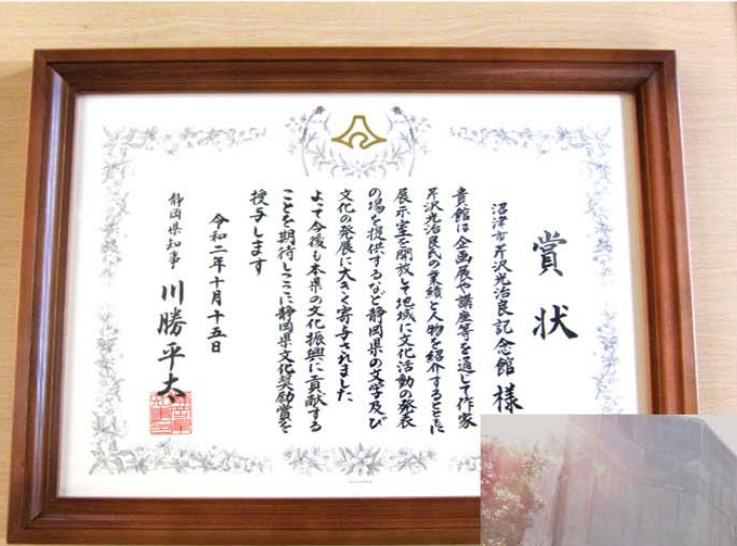 賞状
沼津市芹沢光治良記念館 様
貴館は企画展や講座等を通して作家
芹沢光治良氏の業績と人物を紹介するとともに
展示室を開放して地域に文化活動の発表
の場を提供するなど静岡県の文学及び
文化の発展に大きく寄与されました
よって今後も本県の文化振興に貢献する
ことを期待しここに静岡県文化奨励賞を
授与します
令和二年十月十五日
静岡県知事 川勝平太